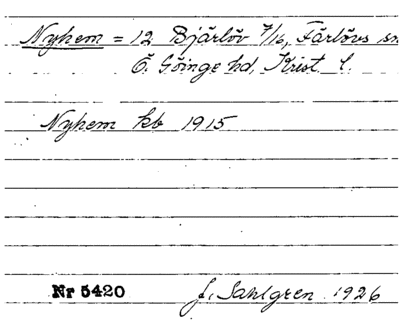 Nyhem = 12 Bjärlöv 7/16, Färlövs sn
Ö. Göinge hd, Krist. l.
Nyhem kb 1915
Nr 5420
J. Sahlgren 1926